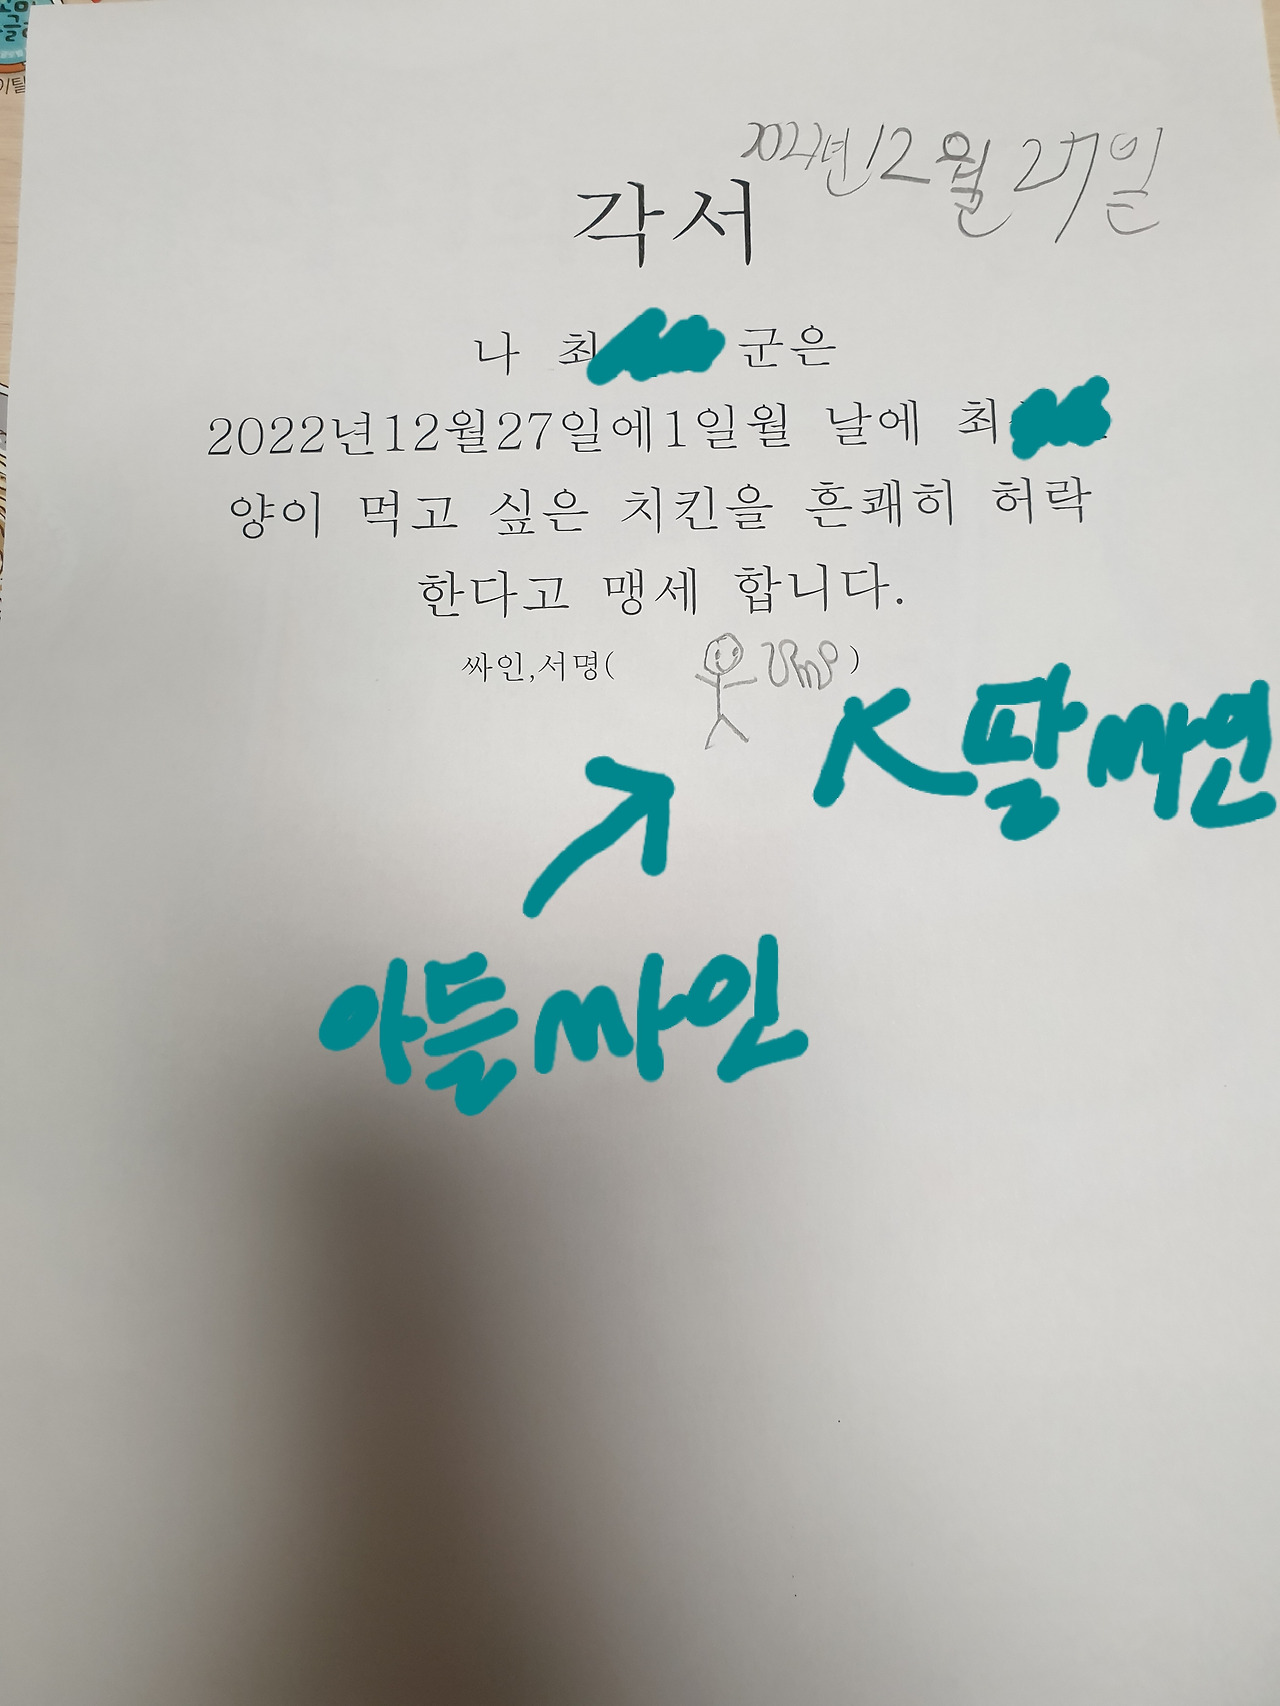 이틸
2022년 12월 27일
각서
나 최 군은
2022년12월27일에1일월 날에 최
양이 먹고 싶은 치킨을 흔쾌히 허락
한다고 맹세 합니다.
싸인,서명( )
딸싸인
아들싸인